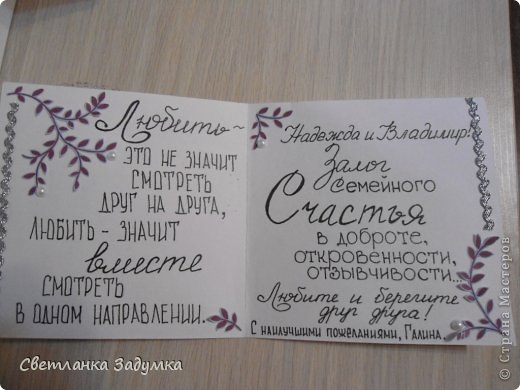 Любить ~
ЭТО НЕ ЗНАЧИТ
СМОТРЕТЬ
ДРУГ НА ДРУГА,
ЛЮБИТЬ - ЗНАЧИТ
вместе
СМОТРЕТЬ
В ОДНОМ НАПРАВЛЕНИИ.
Надежда и Владимир!
Залог
Семейного
Счастья
в доброте,
откровенности,
отзывчивости...
Любите и берегите
друг друга!
С наилучшими пожеланиями, Галина.
Светланка Задумка
© Страна Мастеров